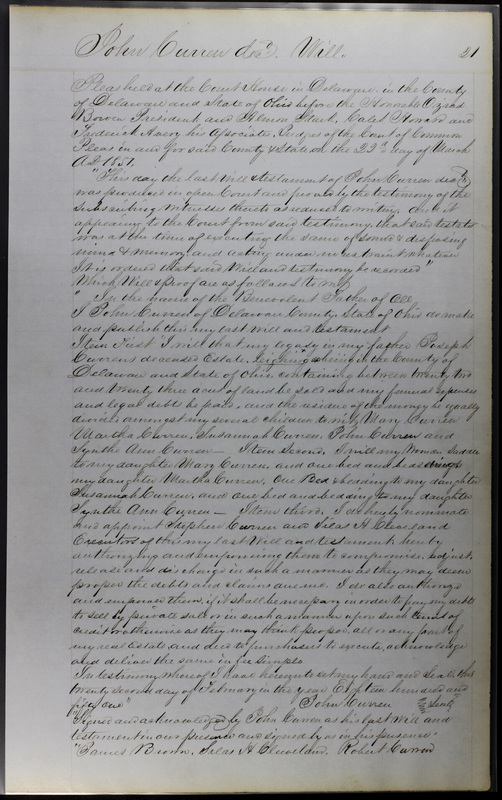 John Curren decd. Will. 21
Pleas held at the Court House in Delaware, in the County
of Delaware and State of Ohio before the Honorable Ozias
Bowen President and Ahmon Stark, Caleb Howard and
Frederick Avery his Associate Judges of the Court of Common
Pleas in and for said County & State on the 22nd day of March
AD 1851.
"This day the last Will & testament of John Curren decd
was produced in open Court and proven by the testimony of the
subscribing witnesses thereto as reduced to writing. And it
appearing to the Court from said testimony, that said testator
was at the time of executing the same of sound & disposing
mind & memory and acting under no restraint whatever
It is ordered that said Will and testimony be recorded"
Which Will & proof are as follows to wit,
"In the name of the Benevolent Father of All,
I John Curren of Delaware County, State of Ohio do make
and publish this my last Will and testament
Item First I will that my legacy in my father Joseph
Currens deceased Estate, being in the County of
Delaware and State of Ohio, containing between twenty two
and twenty three acres of land be sold and my funeral expenses
and legal debts be paid, and the residue of the money be equally
divided amongst my several children to wit, Mary Curren
Martha Curren, Susannah Curren, John Curren and
Synthe Ann Curren — Item Second, I will my Woman Saddle
to my daughter Mary Curren, and one bed and bedding to
my daughter Martha Curren, One Bed & bedding to my daughter
Susannah Curren, and one bed and bedding to my daughter
Synthe Ann Curren — Item third, I do hereby nominate
and appoint Stephen Curren and Silas H Cleveland
Executors of this my last Will and testament hereby
authorizing and empowering them to compromise, adjust,
release and discharge in such a manner as they may deem
proper the debts and claims due me. I do also authorize
and empower them, if it shall be necessary in order to pay my debts
to sell by private sale or in such a manner upon such terms of
credit or otherwise as they may think proper, all or any part of
my real Estate and deeds to purchasers to execute, acknowledge
and deliver the same in fee simple
In testimony whereof I have hereunto set my hand and seal this
twenty second day of February in the year Eighteen hundred and
fifty one" John Curren Seal
"Signed and acknowledged by John Curren as his last Will and
testament in our presence and signed by us in his presence"
"James Brown, Silas H Cleveland, Robert Curren